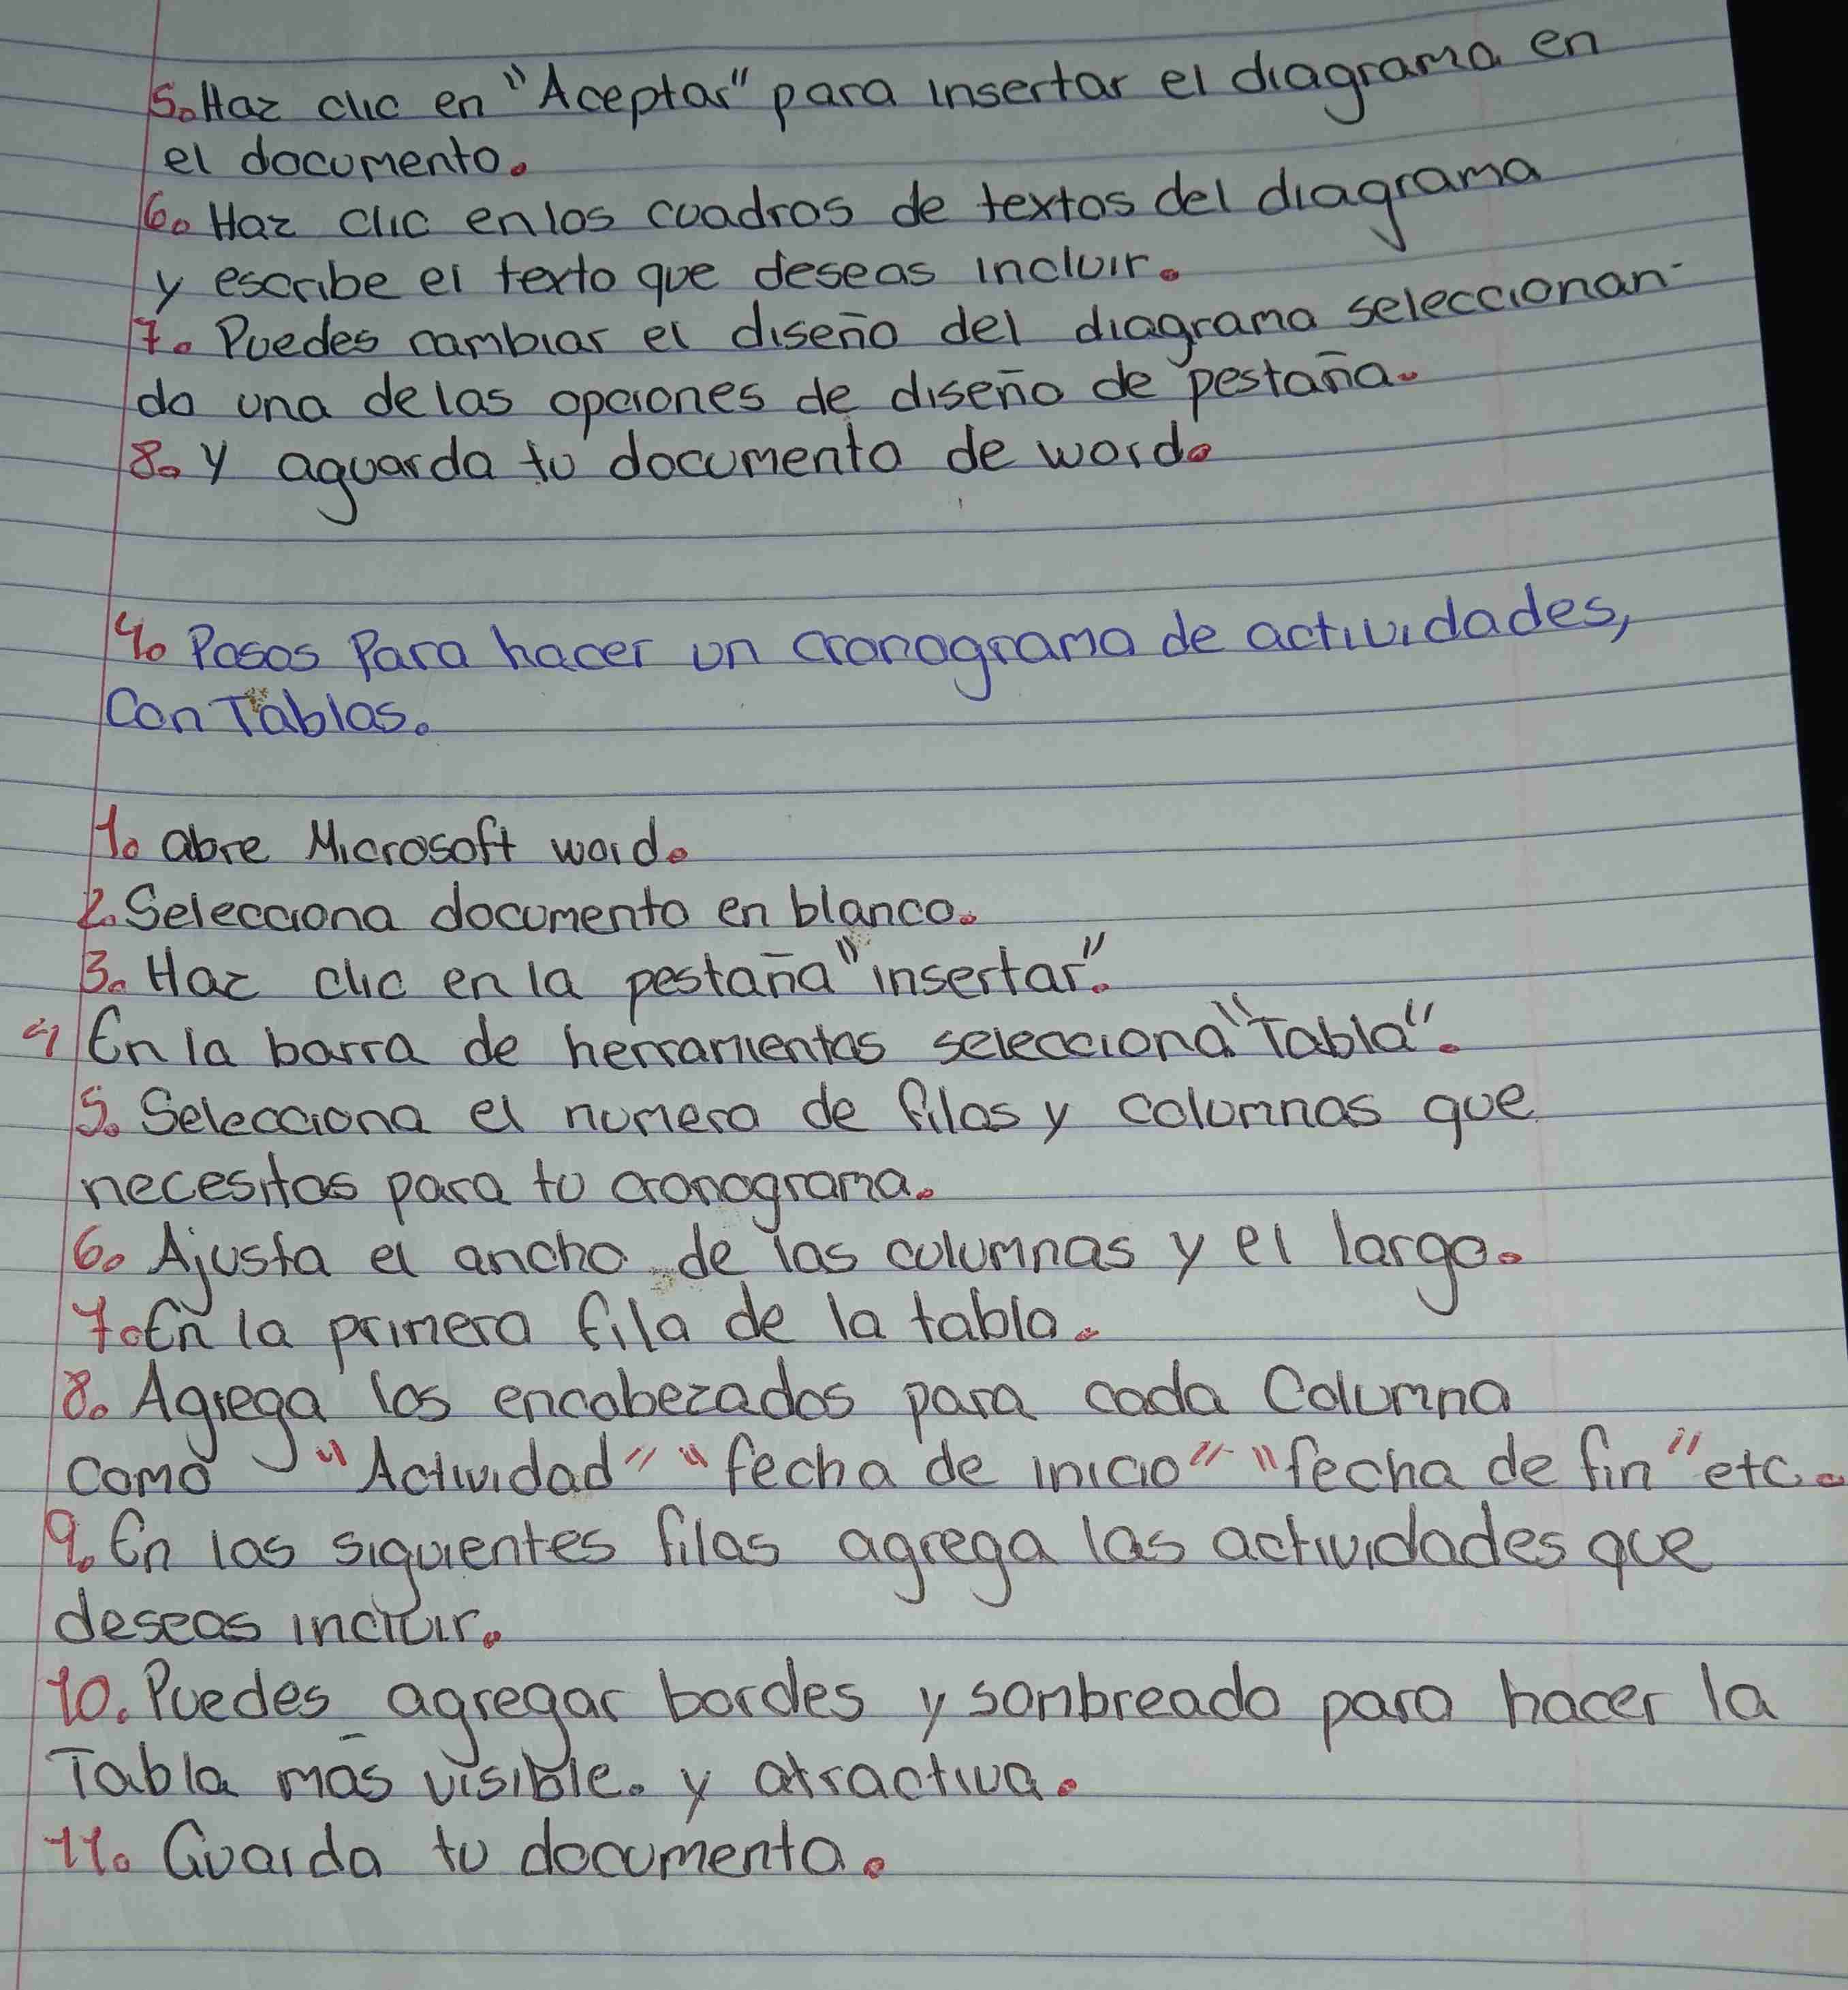 5. Haz clic en "Aceptar" para insertar el diagrama en
el documento.
6. Haz clic en los cuadros de textos del diagrama
y escribe el texto que deseas incluir.
7. Puedes cambiar el diseño del diagrama seleccionan-
do una de las opciones de diseño de pestaña.
8. y aguarda tu documento de word.
4. Pasos Para hacer un cronograma de actividades,
Con Tablas.
1. abre Microsoft word.
2. Selecciona documento en blanco.
3. Haz clic en la pestaña "insertar".
4 En la barra de herramientas selecciona "Tabla".
5. Selecciona el numero de filas y columnas que
necesitas para tu cronograma.
6. Ajusta el ancho de las columnas y el largo.
7. En la primera fila de la tabla.
8. Agrega los encabezados para cada Columna
como "Actividad" "fecha de inicio" "fecha de fin" etc.
9. En las siguientes filas agrega las actividades que
deseas incluir.
10. Puedes agregar bordes y sombreado para hacer la
Tabla más visible. y atractiva.
11. Guarda tu documento.